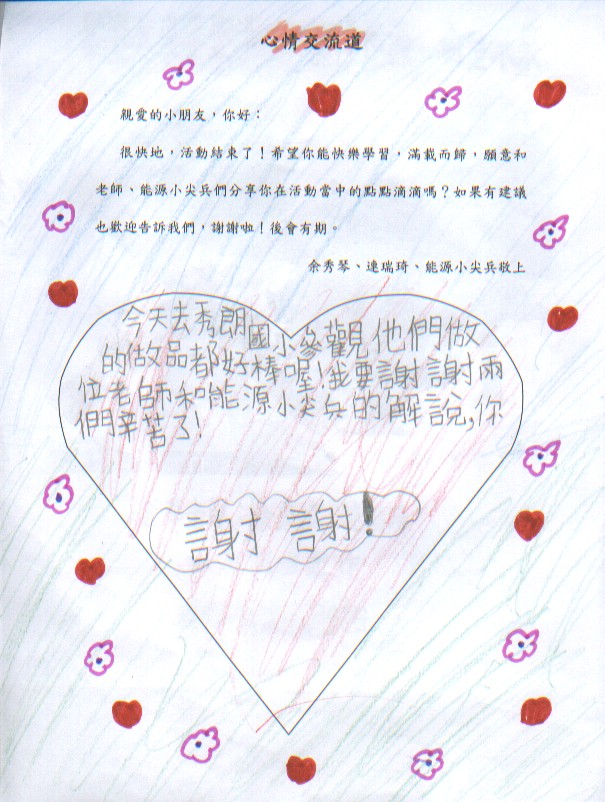 心情交流道
親愛的小朋友，你好：
很快地，活動結束了！希望你能快樂學習，滿載而歸，願意和
老師、能源小尖兵們分享你在活動當中的點點滴滴嗎？如果有建議
也歡迎告訴我們，謝謝啦！後會有期。
余秀琴、連瑞琦、能源小尖兵敬上
今天去秀朗國小參觀他們做
的做品都好棒喔！我要謝謝兩
位老師和能源小尖兵的解說,你
們辛苦了！
謝謝！